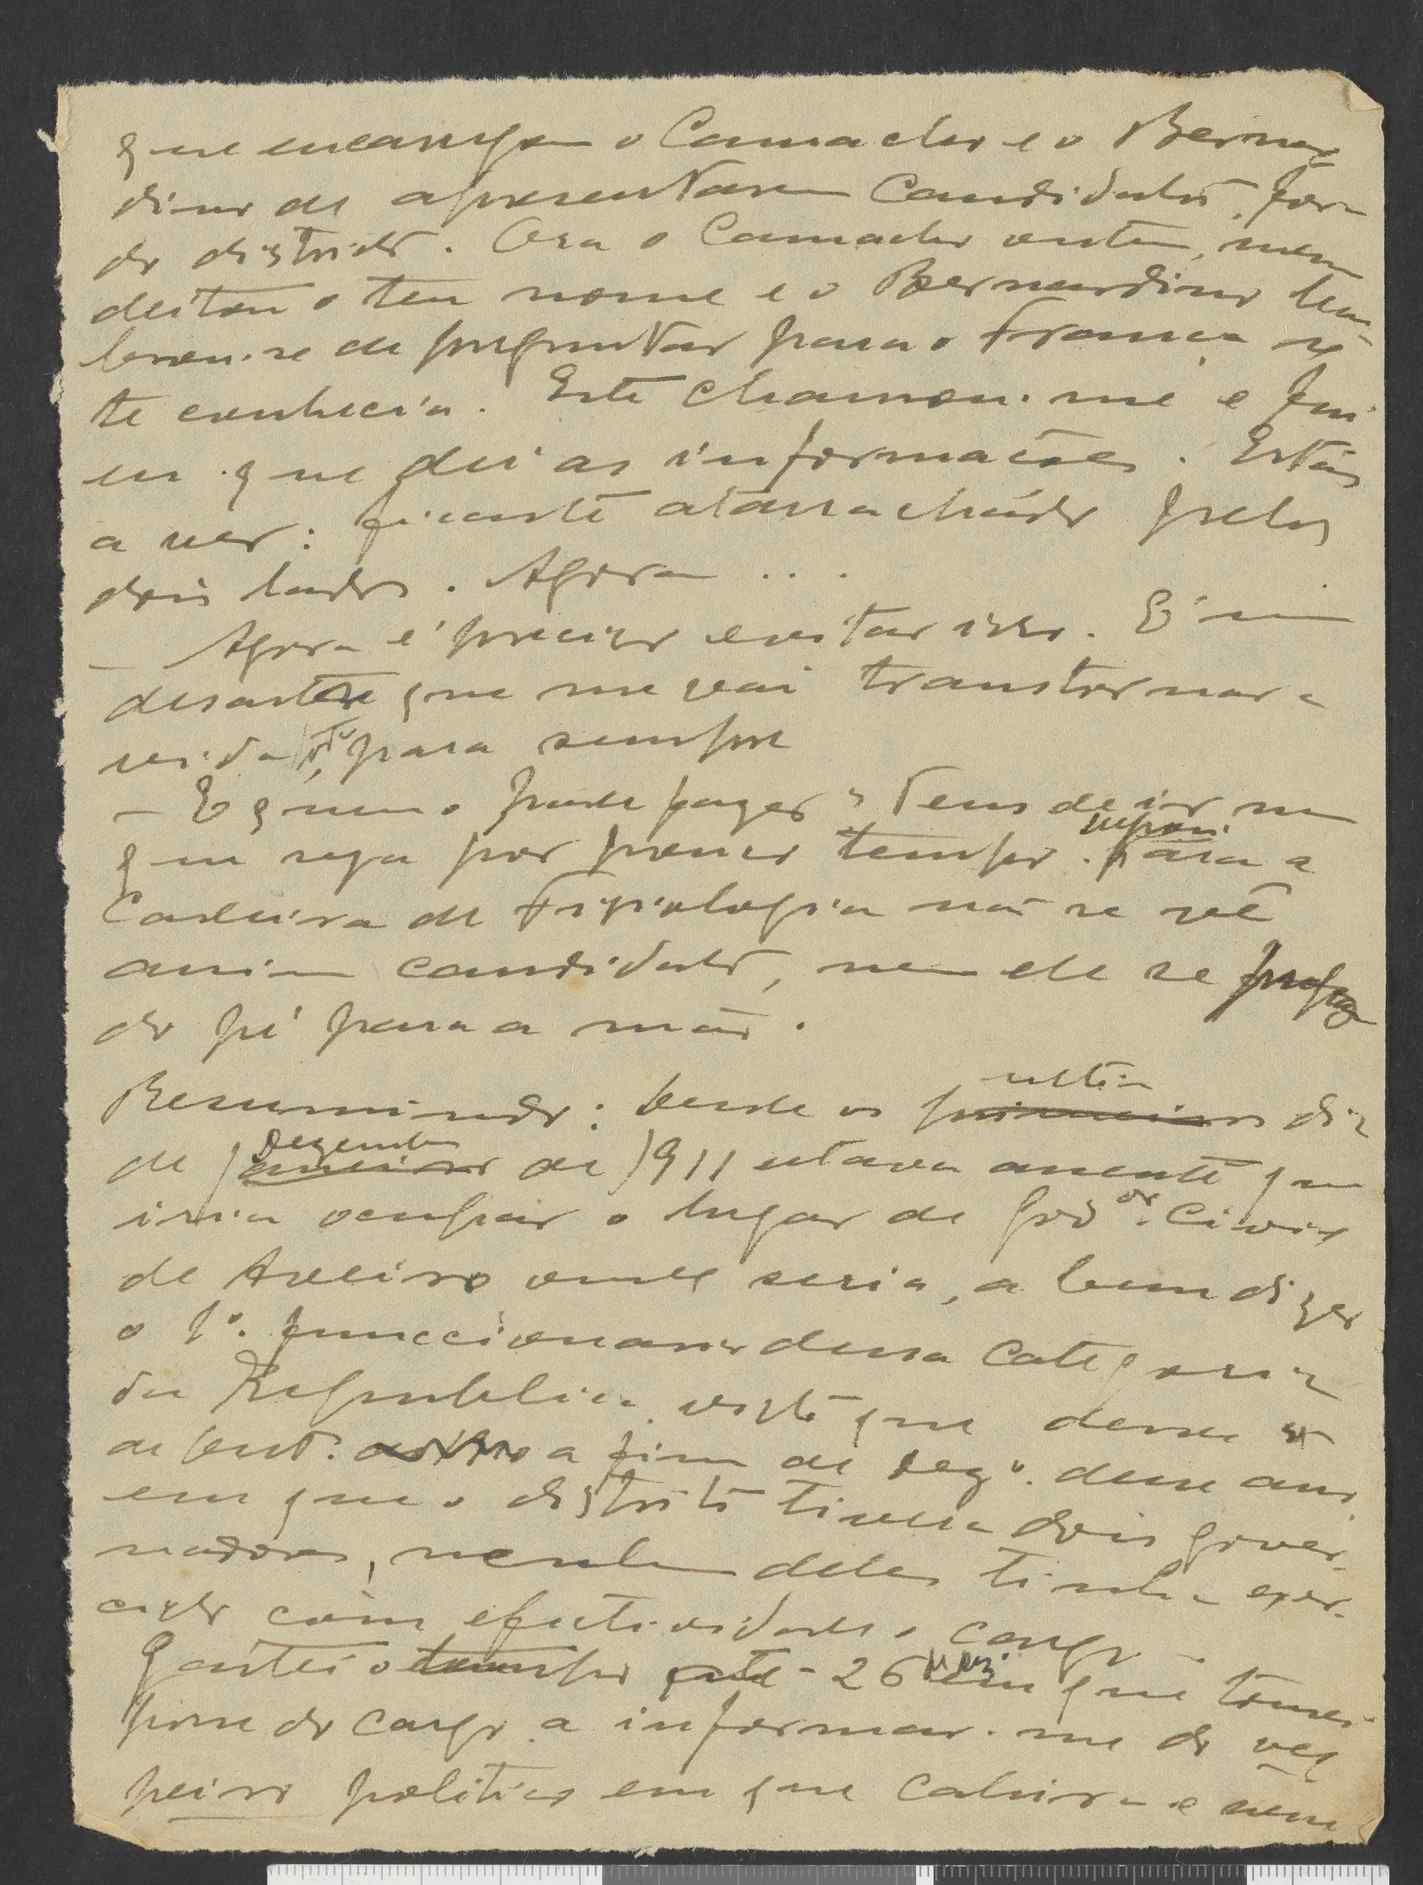 que encarregam o Camacho e o Bernar-
dino de apresentarem candidatos, fóra
do districto. Ora o Camacho ontem,
deitou o teu nome e o Bernardino lem-
brou-se de preguntar para o França se
te conhecia. Este chamou-me e fui
eu que dei as informações. Estás
a ver: ficaste atarrachado pelos
dois lados. Agora ...
— Agora é preciso evitar isso. É um
desastre que me vai transtornar a
vida para sempre
— E quem o pode fazer? Tens de ir
que seja por pouco tempo. para a
Cadeira de Fisiologia não se vê
assim candidato, nem ele se prepara
do pé para a mão.
Resumindo: desde os ultimos dias
de Dezembro de 1911 estava assente que
iria ocupar o lugar de Gov.or Civil
de Aveiro onde seria, a bem dizer
o 1º. funccionario dessa categoria
da Republica, visto que desde
de Out. a fim de Dez.º desse ano
em que o distrito tivera dois gover-
nadores, nenhum deles tinha exer-
cido com efectividade o cargo.
Gastei o tempo até 26 em que tomei
posse do cargo a informar-me do ves-
peiro politico em que cahira e nem